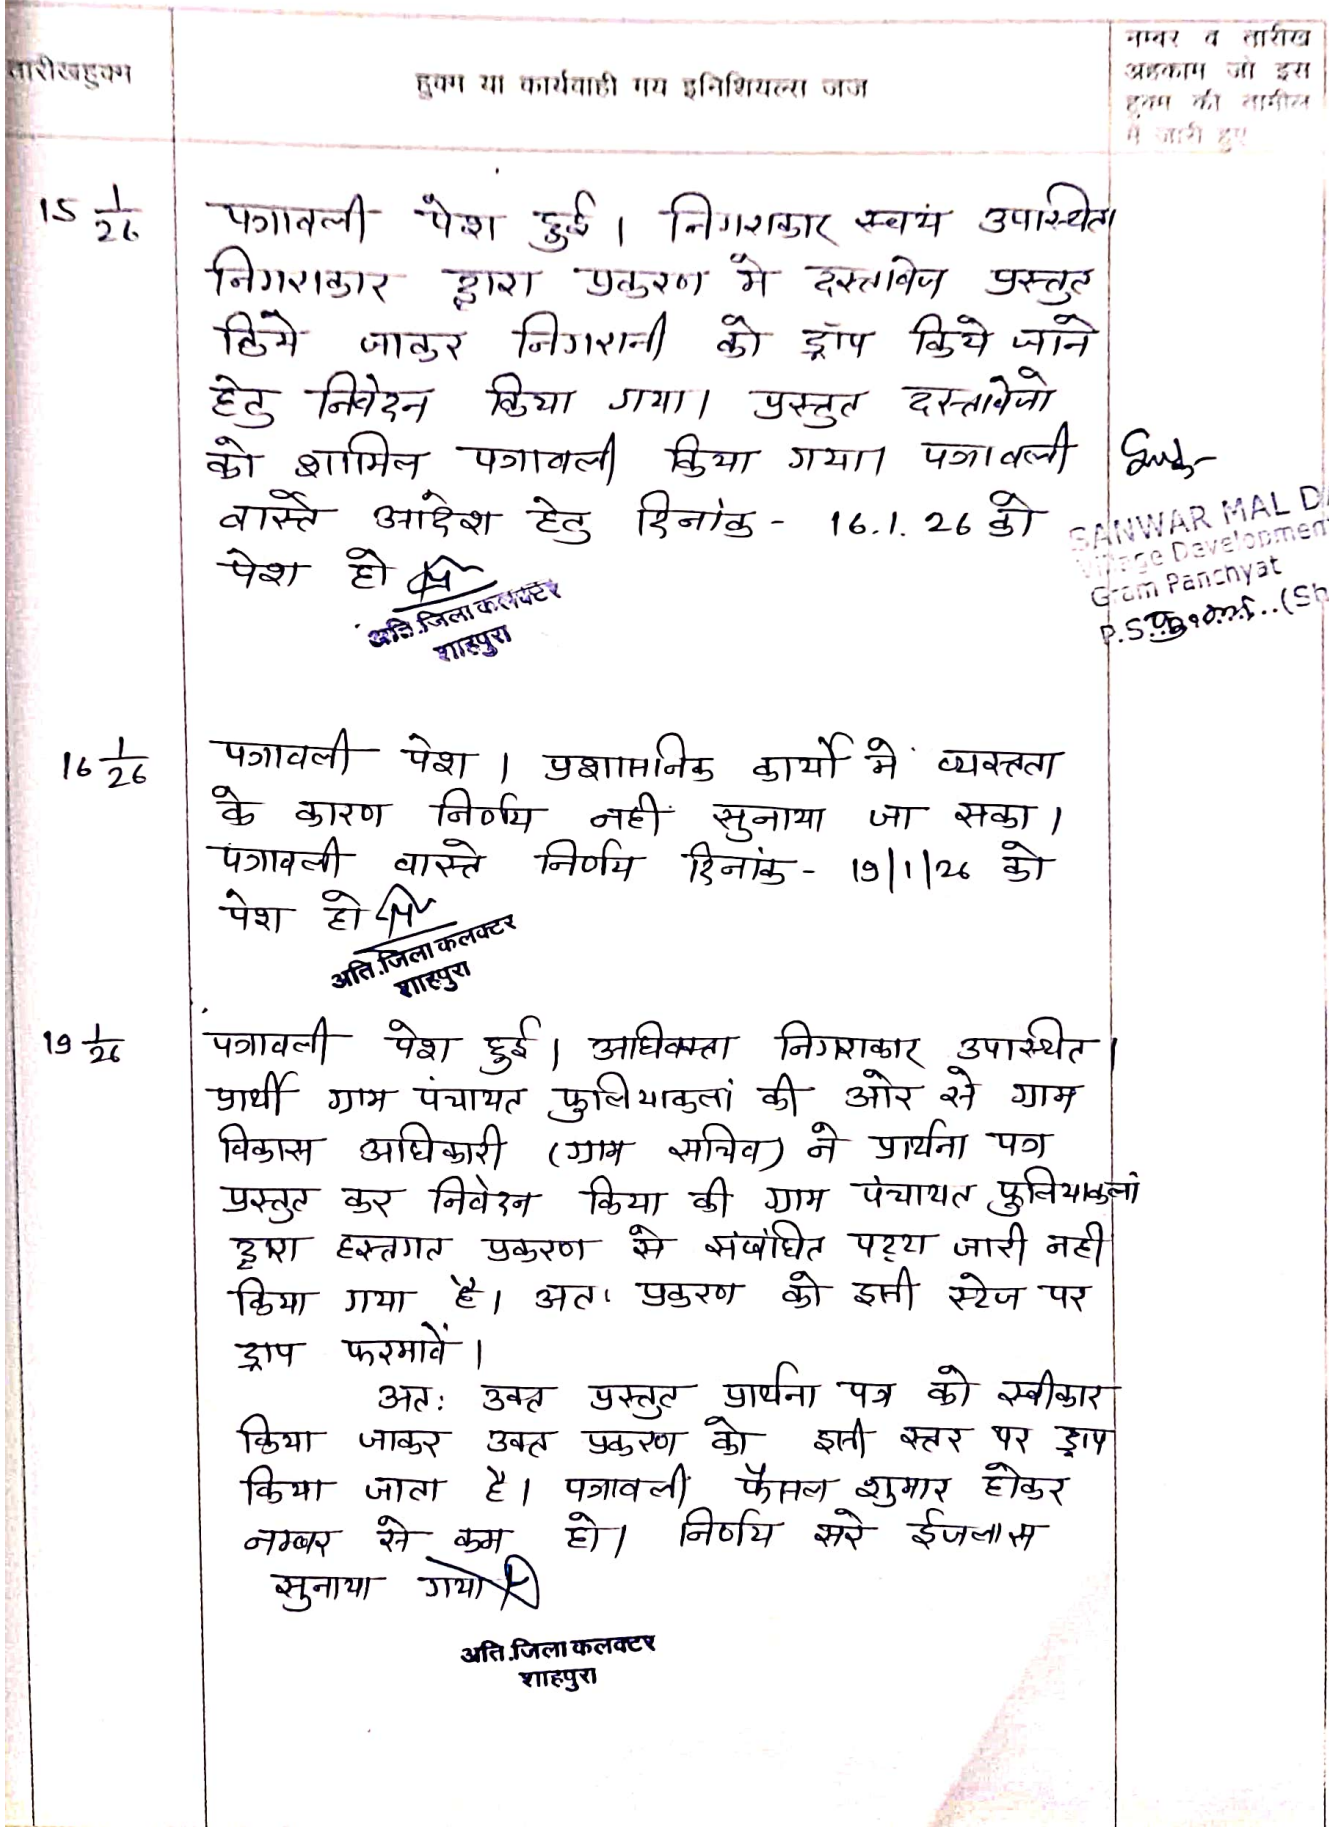 तारीखहुक्म
हुक्म या कार्यवाही मय इनिशियल्स जज
नम्बर व तारीख
अहकाम जो इस
हुक्म की तामील
में जारी हुए
15 1/26
पत्रावली पेश हुई। निगराकार स्वयं उपास्थित।
निगराकार द्वारा प्रकरण मे दस्तावेज प्रस्तुत
किये जाकर निगरानी को ड्रॉप किये जाने
हेतु निवेदन किया गया। प्रस्तुत दस्तावेजो
को शामिल पत्रावली किया गया। पत्रावली
वास्ते आदेश हेतु दिनांक - 16.1.26 को
पेश हो
अति.जिला कलक्टर
शाहपुरा
SANWAR MAL D
Village Developmen
Gram Panchyat
P.S. (Sh
16 1/26
पत्रावली पेश । प्रशासनिक कार्यो मे व्यस्तता
के कारण निर्णय नही सुनाया जा सका।
पत्रावली वास्ते निर्णय दिनांक - 19/1/26 को
पेश हो
अति.जिला कलक्टर
शाहपुरा
19 1/26
पत्रावली पेश हुई। अधिवक्ता निगराकार उपास्थित।
प्रार्थी ग्राम पंचायत फुलियाकलां की ओर से ग्राम
विकास अधिकारी (ग्राम सचिव) ने प्रार्थना पत्र
प्रस्तुत कर निवेदन किया की ग्राम पंचायत फुलियाकलां
द्वारा हस्तगत प्रकरण से संबंधित पट्टा जारी नही
किया गया है। अतः प्रकरण को इसी स्टेज पर
ड्राप फरमावें।
अतः उक्त प्रस्तुत प्रार्थना पत्र को स्वीकार
किया जाकर उक्त प्रकरण को इसी स्तर पर ड्राप
किया जाता है। पत्रावली फैसल शुमार होकर
नम्बर से कम हो। निर्णय सरे ईजलास
सुनाया गया
अति.जिला कलक्टर
शाहपुरा